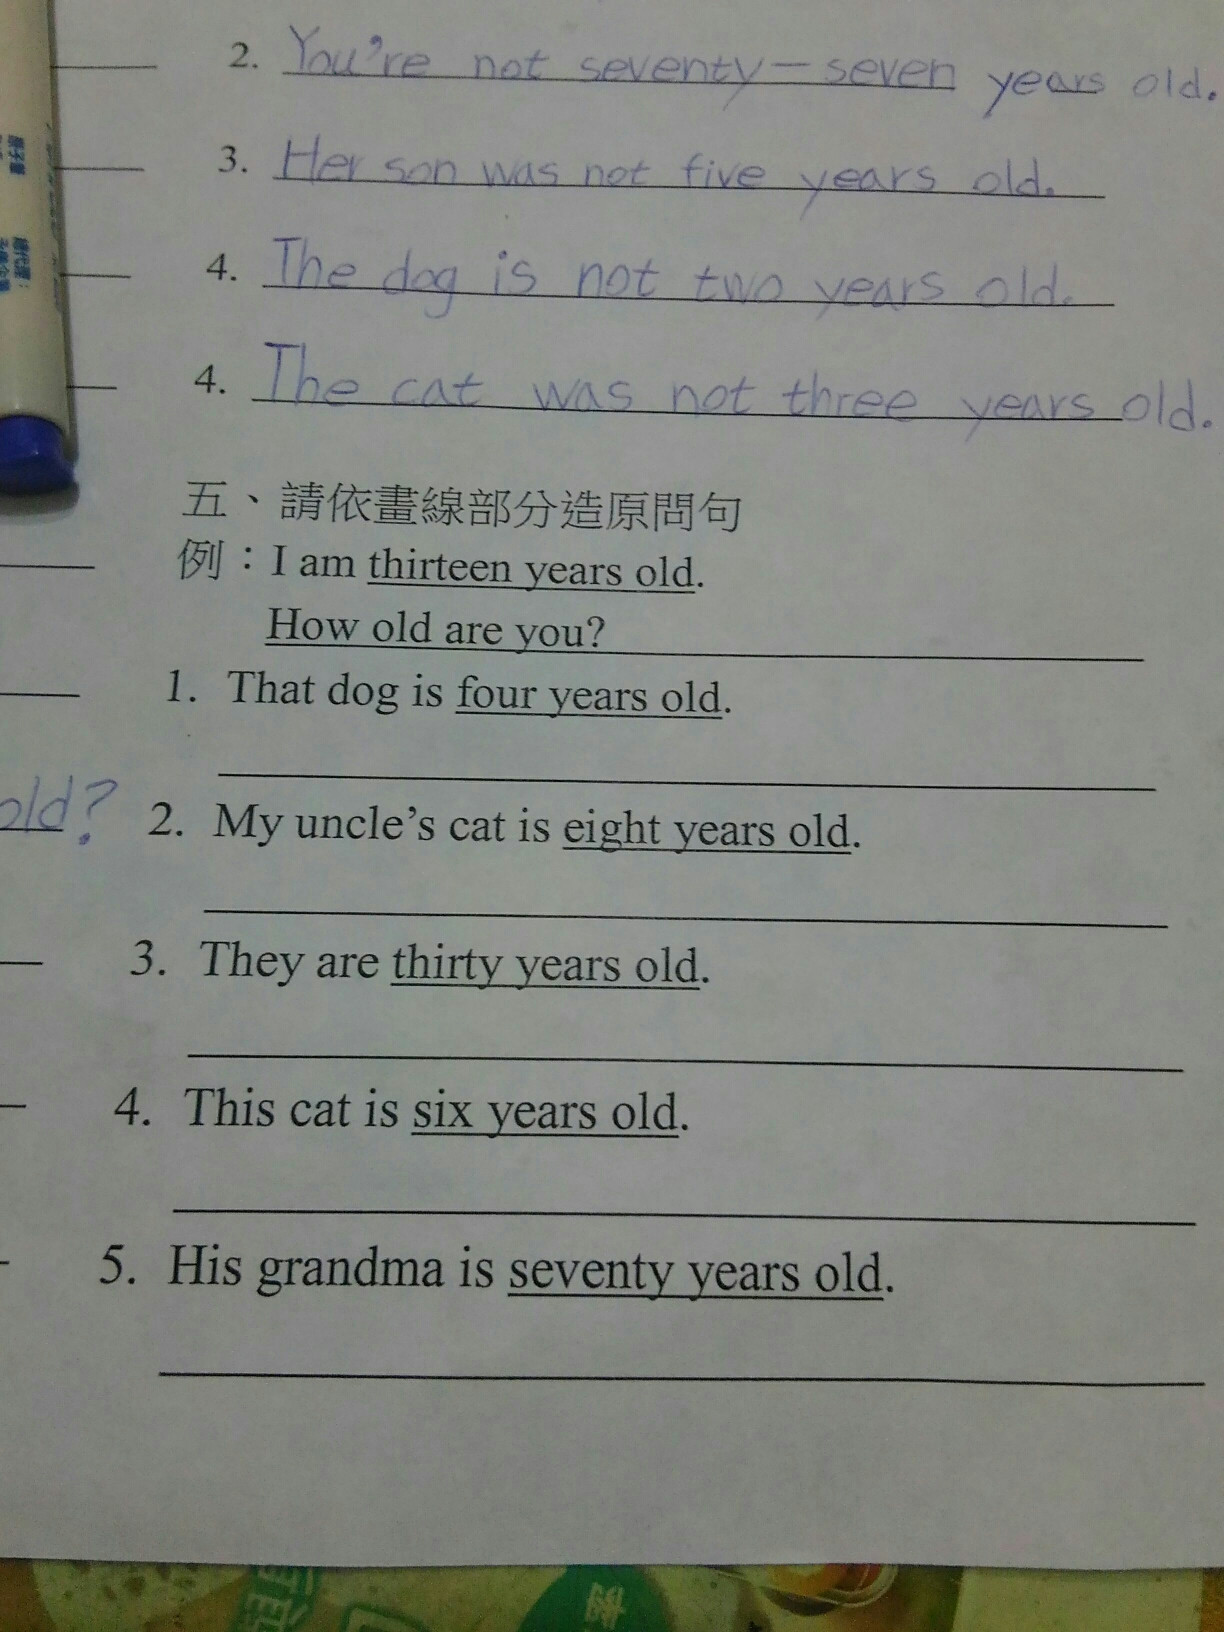 2. You're not seventy-seven years old.
3. Her son was not five years old.
4. The dog is not two years old.
4. The cat was not three years old.
五、請依畫線部分造原問句
例：I am thirteen years old.
How old are you?
1. That dog is four years old.
old?
2. My uncle's cat is eight years old.
3. They are thirty years old.
4. This cat is six years old.
5. His grandma is seventy years old.